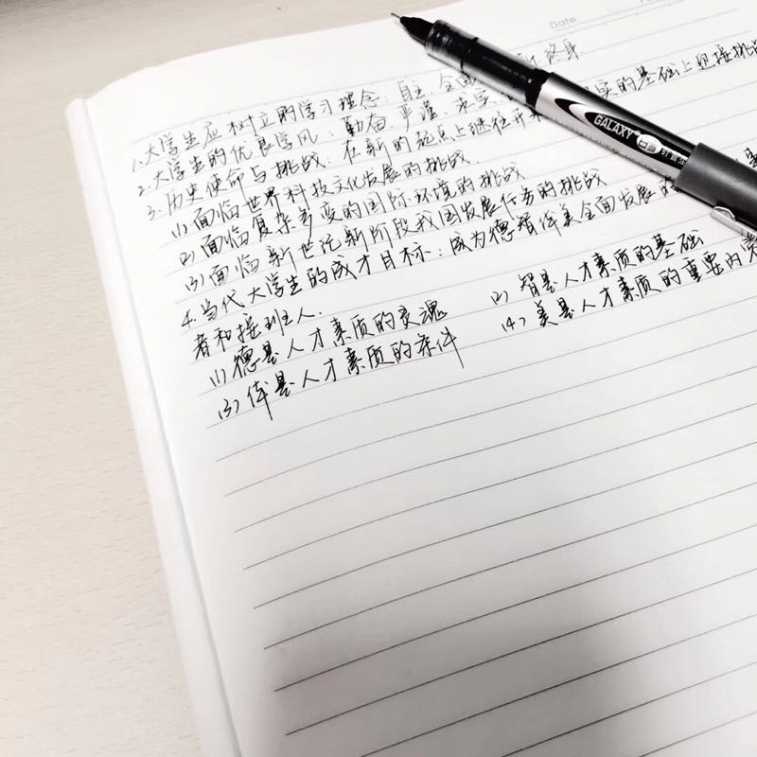 Date
1.大学生应树立的学习理念：自主、全面 终身
2.大学生的优良学风：勤奋、严谨、求实、
3.历史使命与挑战：在新的起点上继往开 的基础上迎接挑战
(1)面临世界科技文化发展的挑战.
(2)面临复杂多变的国际环境的挑战
(3)面临新世纪新阶段我国发展任务的挑战
4.当代大学生的成才目标：成为德智体美全面发展
者和接班人.
(1)德是人才素质的灵魂 (2)智是人才素质的基础
(3)体是人才素质的条件 (4)美是人才素质的重要内
GALAXY